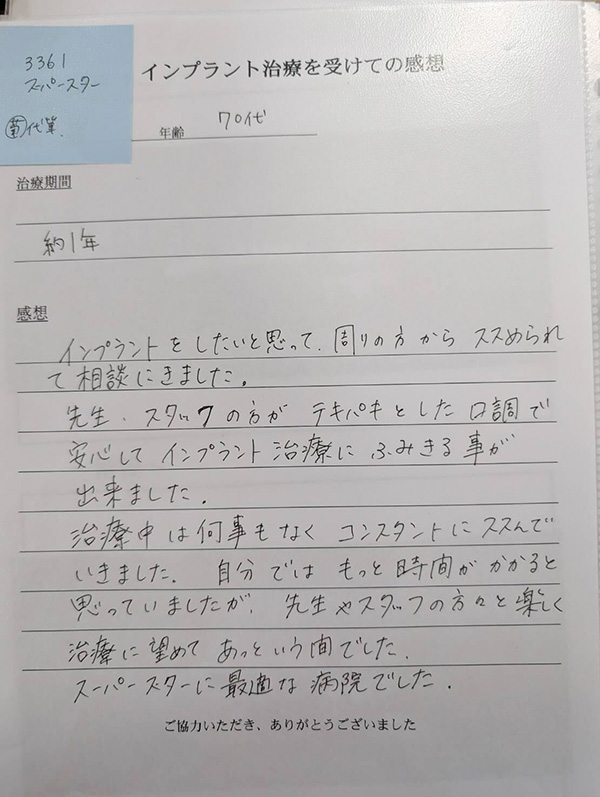 3361
スーパースター
㊞代筆.
インプラント治療を受けての感想
年齢 70代
治療期間
約1年
感想
インプラントをしたいと思って、周りの方から ススめられ
て相談にきました。
先生、スタッフの方が テキパキとした口調で
安心して インプラント治療に ふみきる事が
出来ました。
治療中は何事もなく コンスタントにススんで
いきました。 自分では もっと時間がかかると
思っていましたが、先生やスタッフの方々と楽しく
治療に望めて あっという間でした。
スーパースターに最適な病院でした。
ご協力いただき、ありがとうございました